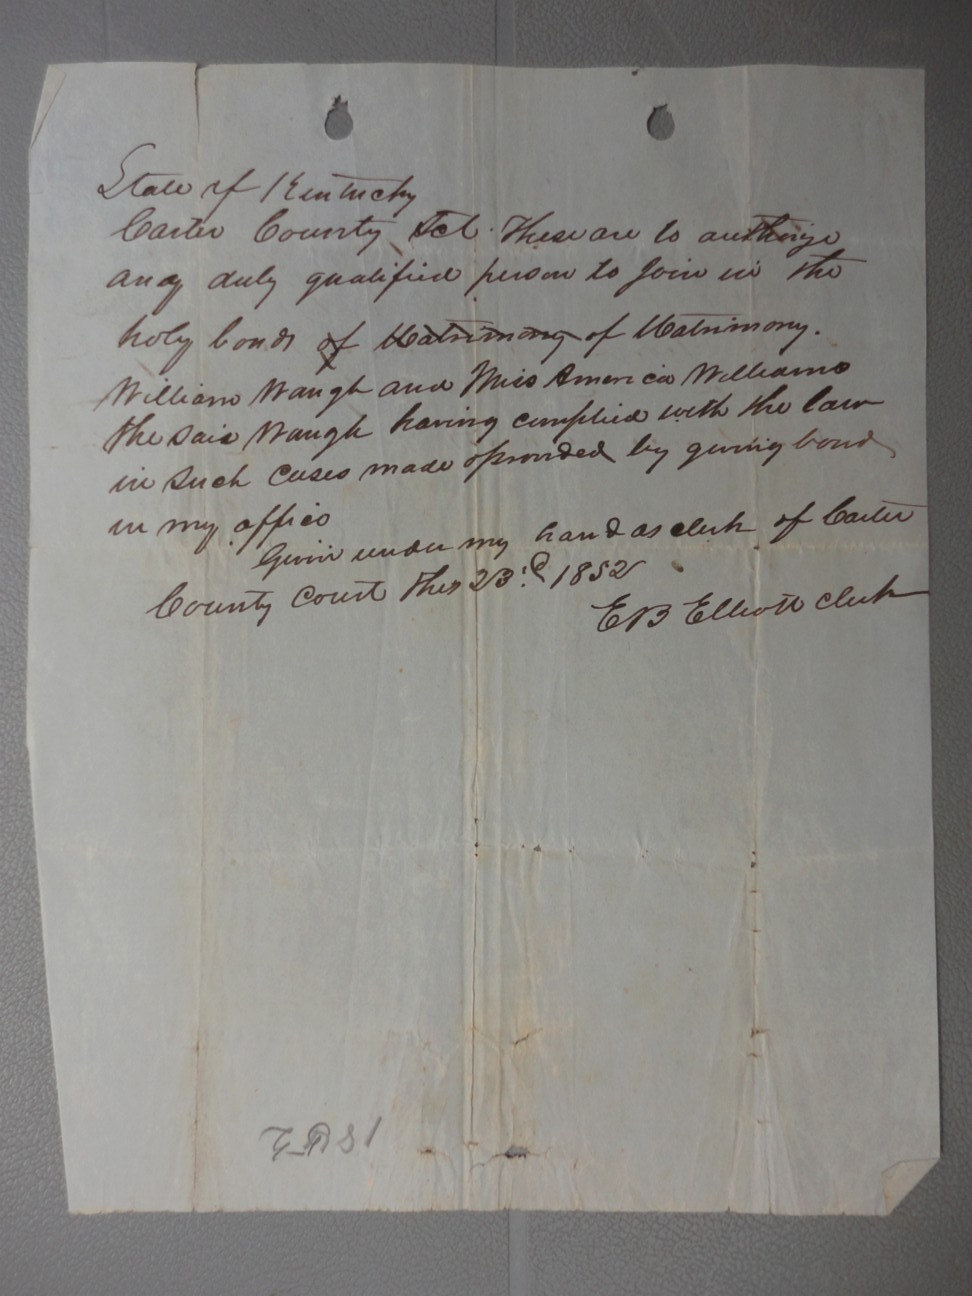 State of Kentucky
Carter County Sct. These are to authorize
any duly qualified person to Join in the
holy bonds of Matrimony of Matrimony.
William Waugh and Miss America Williams
the said Waugh having complied with the law
in such cases made & provided by giving bond
in my office
Given under my hand as clerk of Carter
County Court this 23rd 1852
E B Elliott clerk